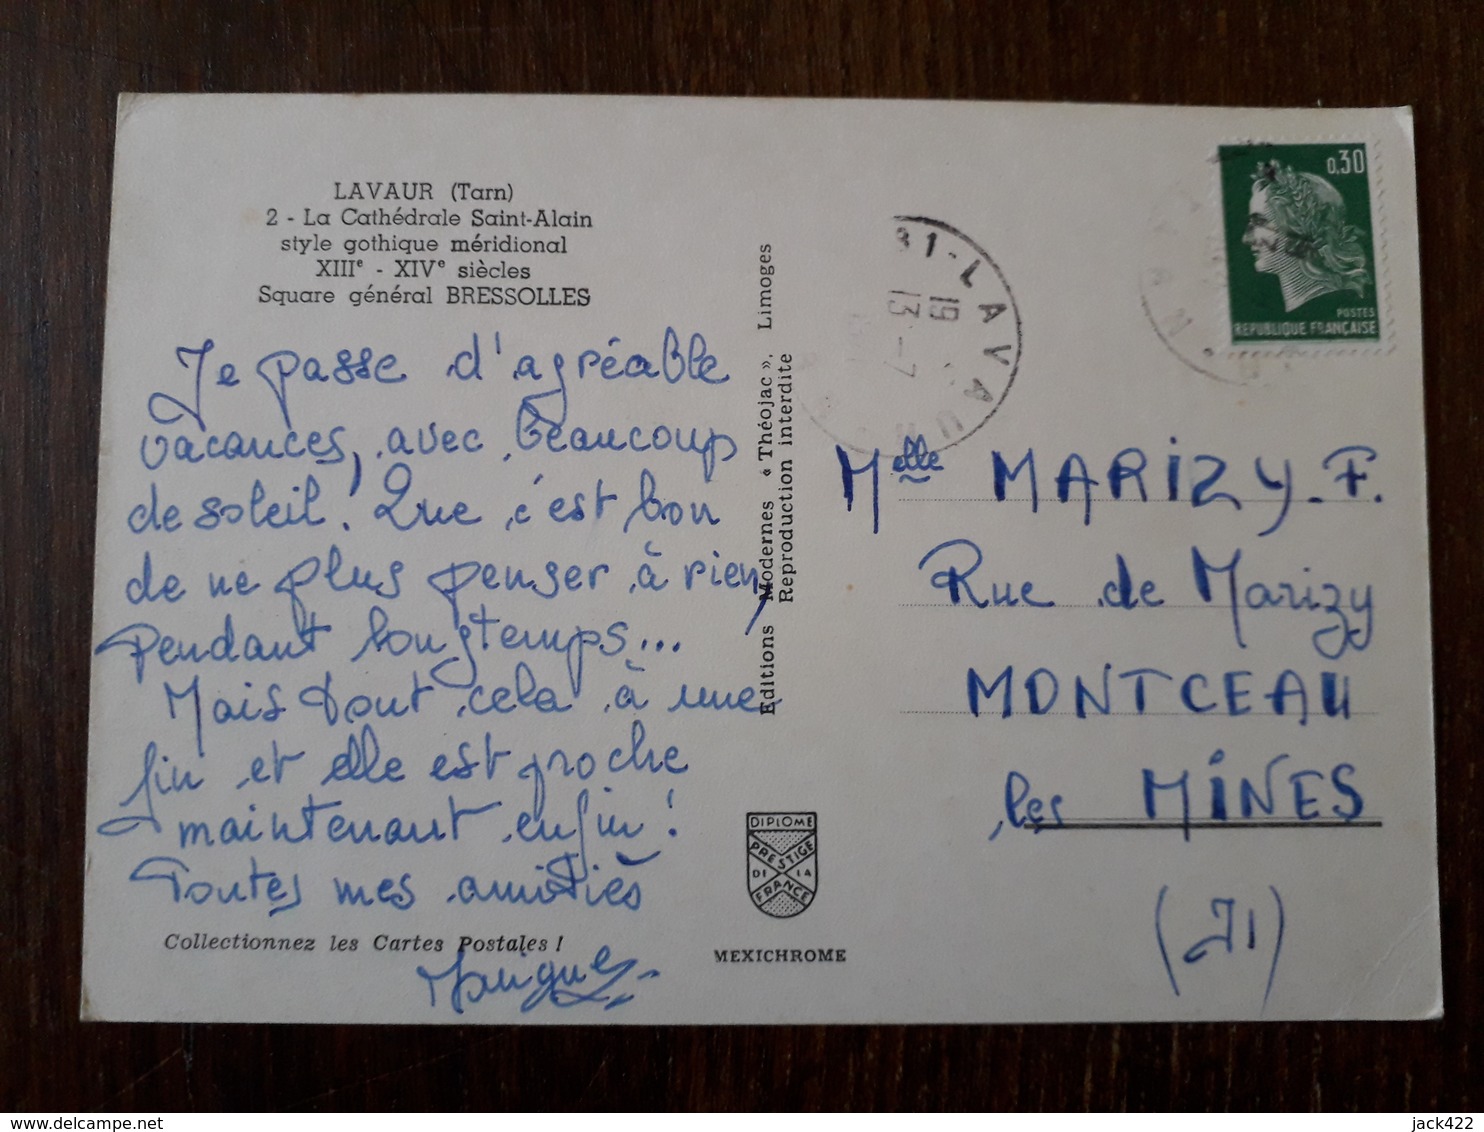 LAVAUR (Tarn)
2 - La Cathédrale Saint-Alain
style gothique méridional
XIIIe - XIVe siècles
Square général BRESSOLLES
Je passe d'agréable
vacances, avec beaucoup
de soleil! Que c'est bon
de ne plus penser à rien,
Pendant longtemps...
Mais tout cela à une
fin et elle est proche
maintenant enfin!
Toutes mes amitiés
Collectionnez les Cartes Postales !
Editions Modernes « Théojac », Limoges
Reproduction interdite
DIPLOME
PRESTIGE
DE LA
FRANCE
MEXICHROME
81-LAVAUR
19
13-7
0,30
POSTES
REPUBLIQUE FRANÇAISE
Melle MARIZY-F.
Rue de Marizy
MONTCEAU
les MINES
(71)
delcampe.net
jack422